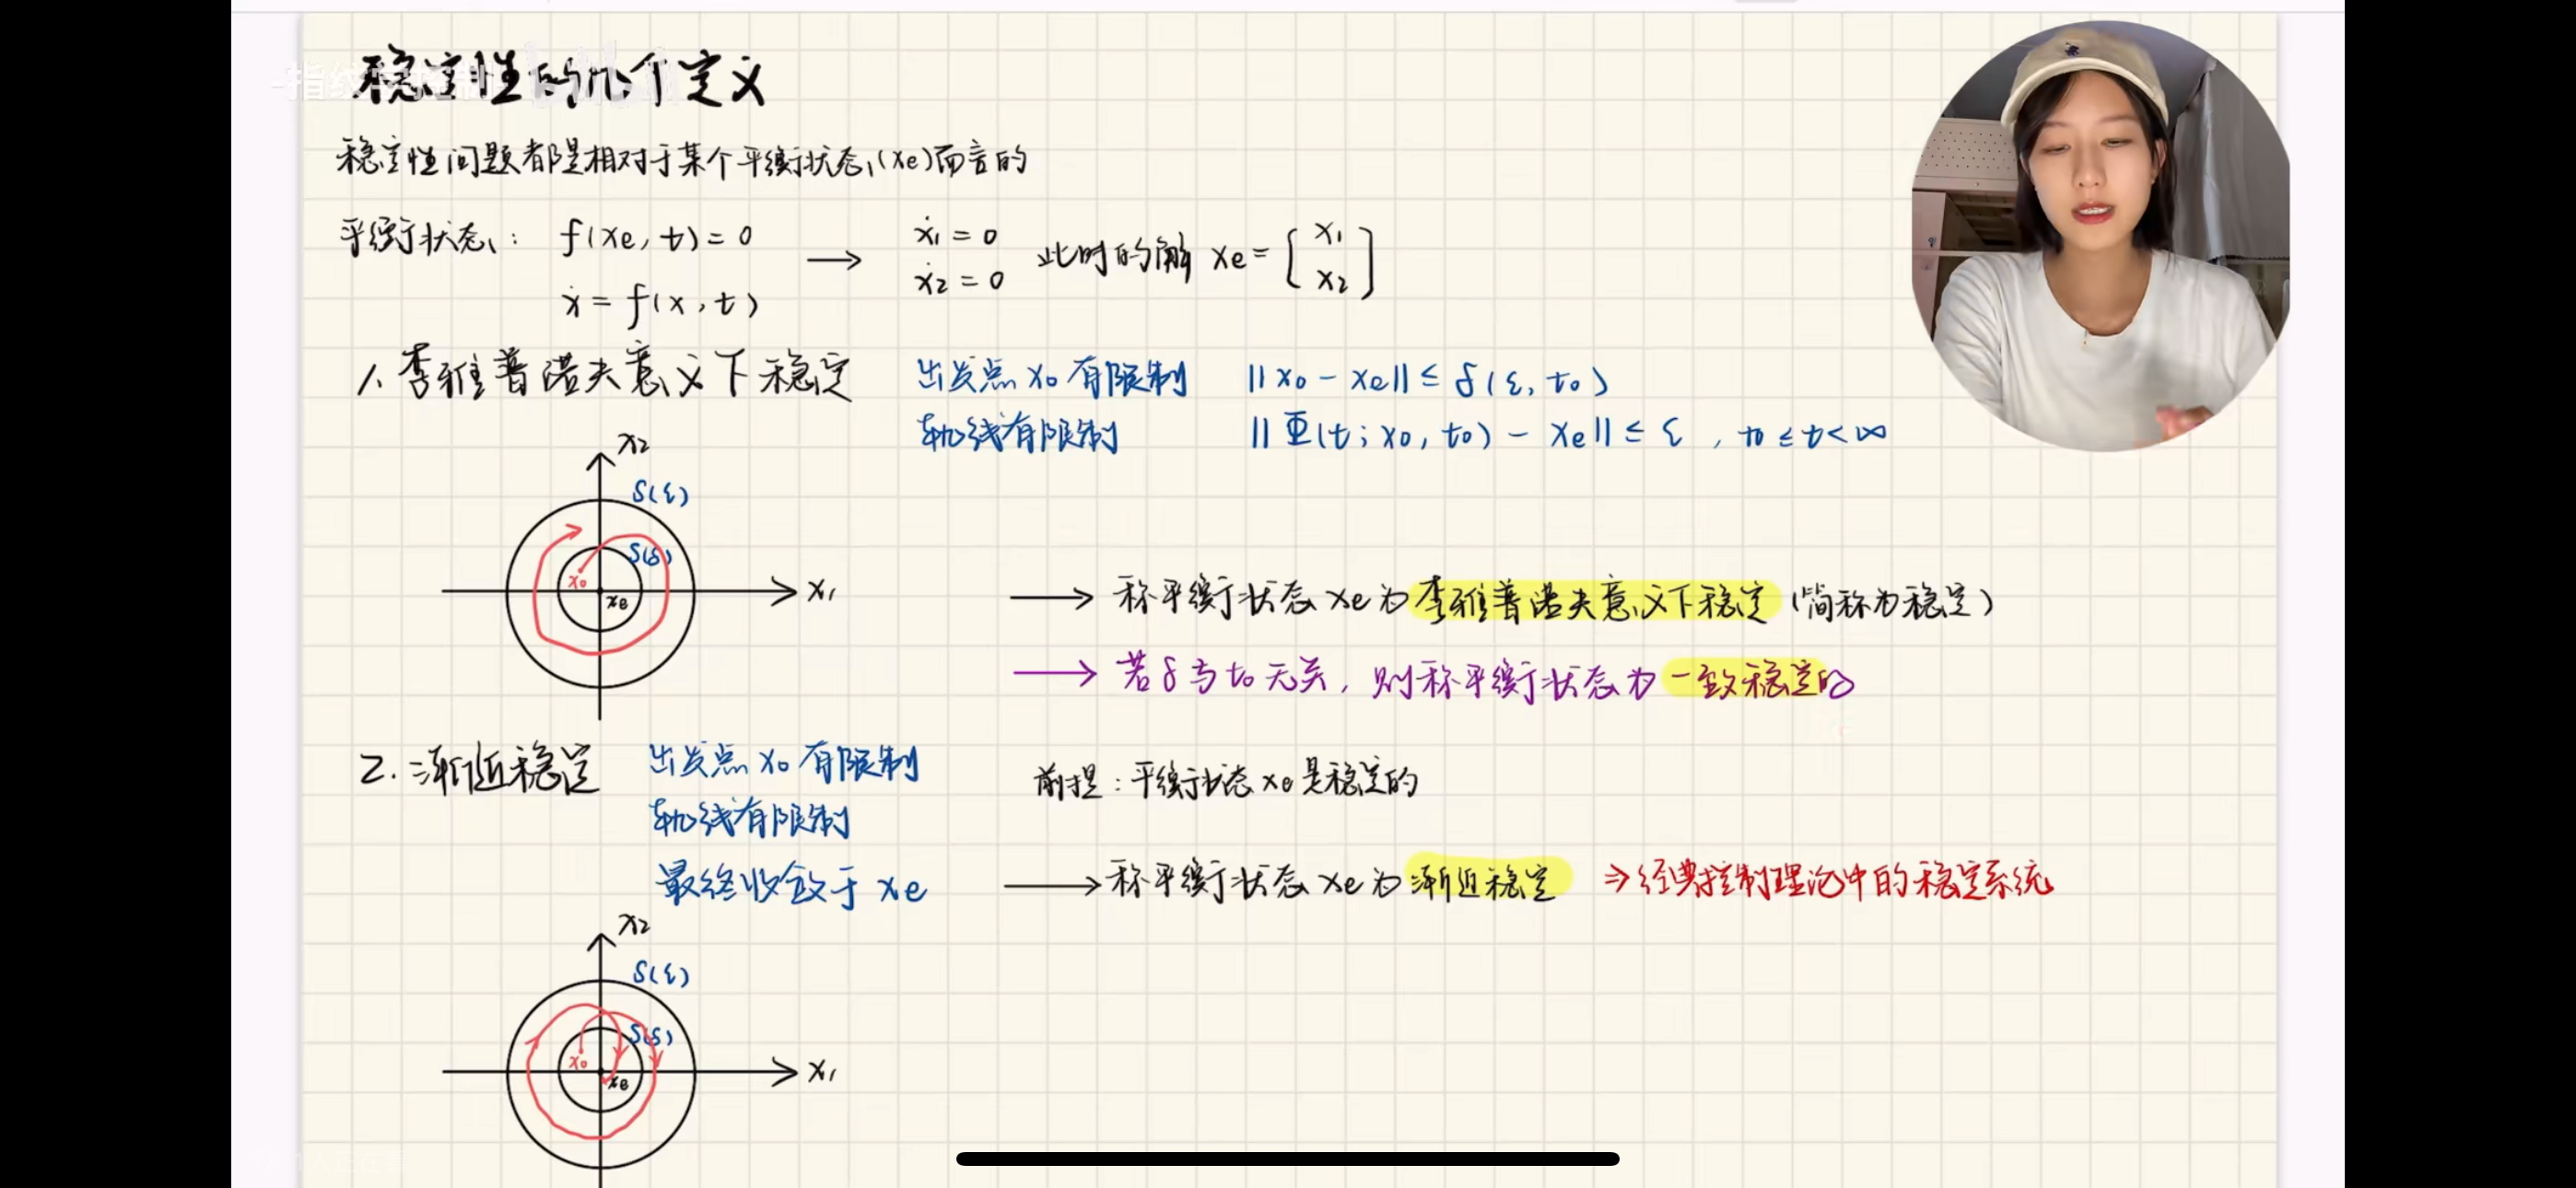 稳定性的几个定义
稳定性问题都是相对于某个平衡状态(xe)而言的
平衡状态: f(xe, t) = 0
ẋ = f(x, t)
→ ẋ1 = 0
ẋ2 = 0
此时的解 xe = [x1 x2]
1、李雅普诺夫意义下稳定
出发点 x0 有限制 ||x0 - xe|| ≤ δ(ε, t0)
轨线有限制 ||Φ(t; x0, t0) - xe|| ≤ ε , t0 ≤ t < ∞
x2
S(ε)
S(δ)
x0
xe
x1
→ 称平衡状态 xe 为李雅普诺夫意义下稳定 (简称为稳定)
→ 若 δ 与 t0 无关, 则称平衡状态为一致稳定的
2. 渐近稳定
出发点 x0 有限制
轨线有限制
最终收敛于 xe
前提: 平衡状态 xe 是稳定的
→ 称平衡状态 xe 为渐近稳定 ⇒ 经典控制理论中的稳定系统
x2
S(ε)
S(δ)
x0
xe
x1